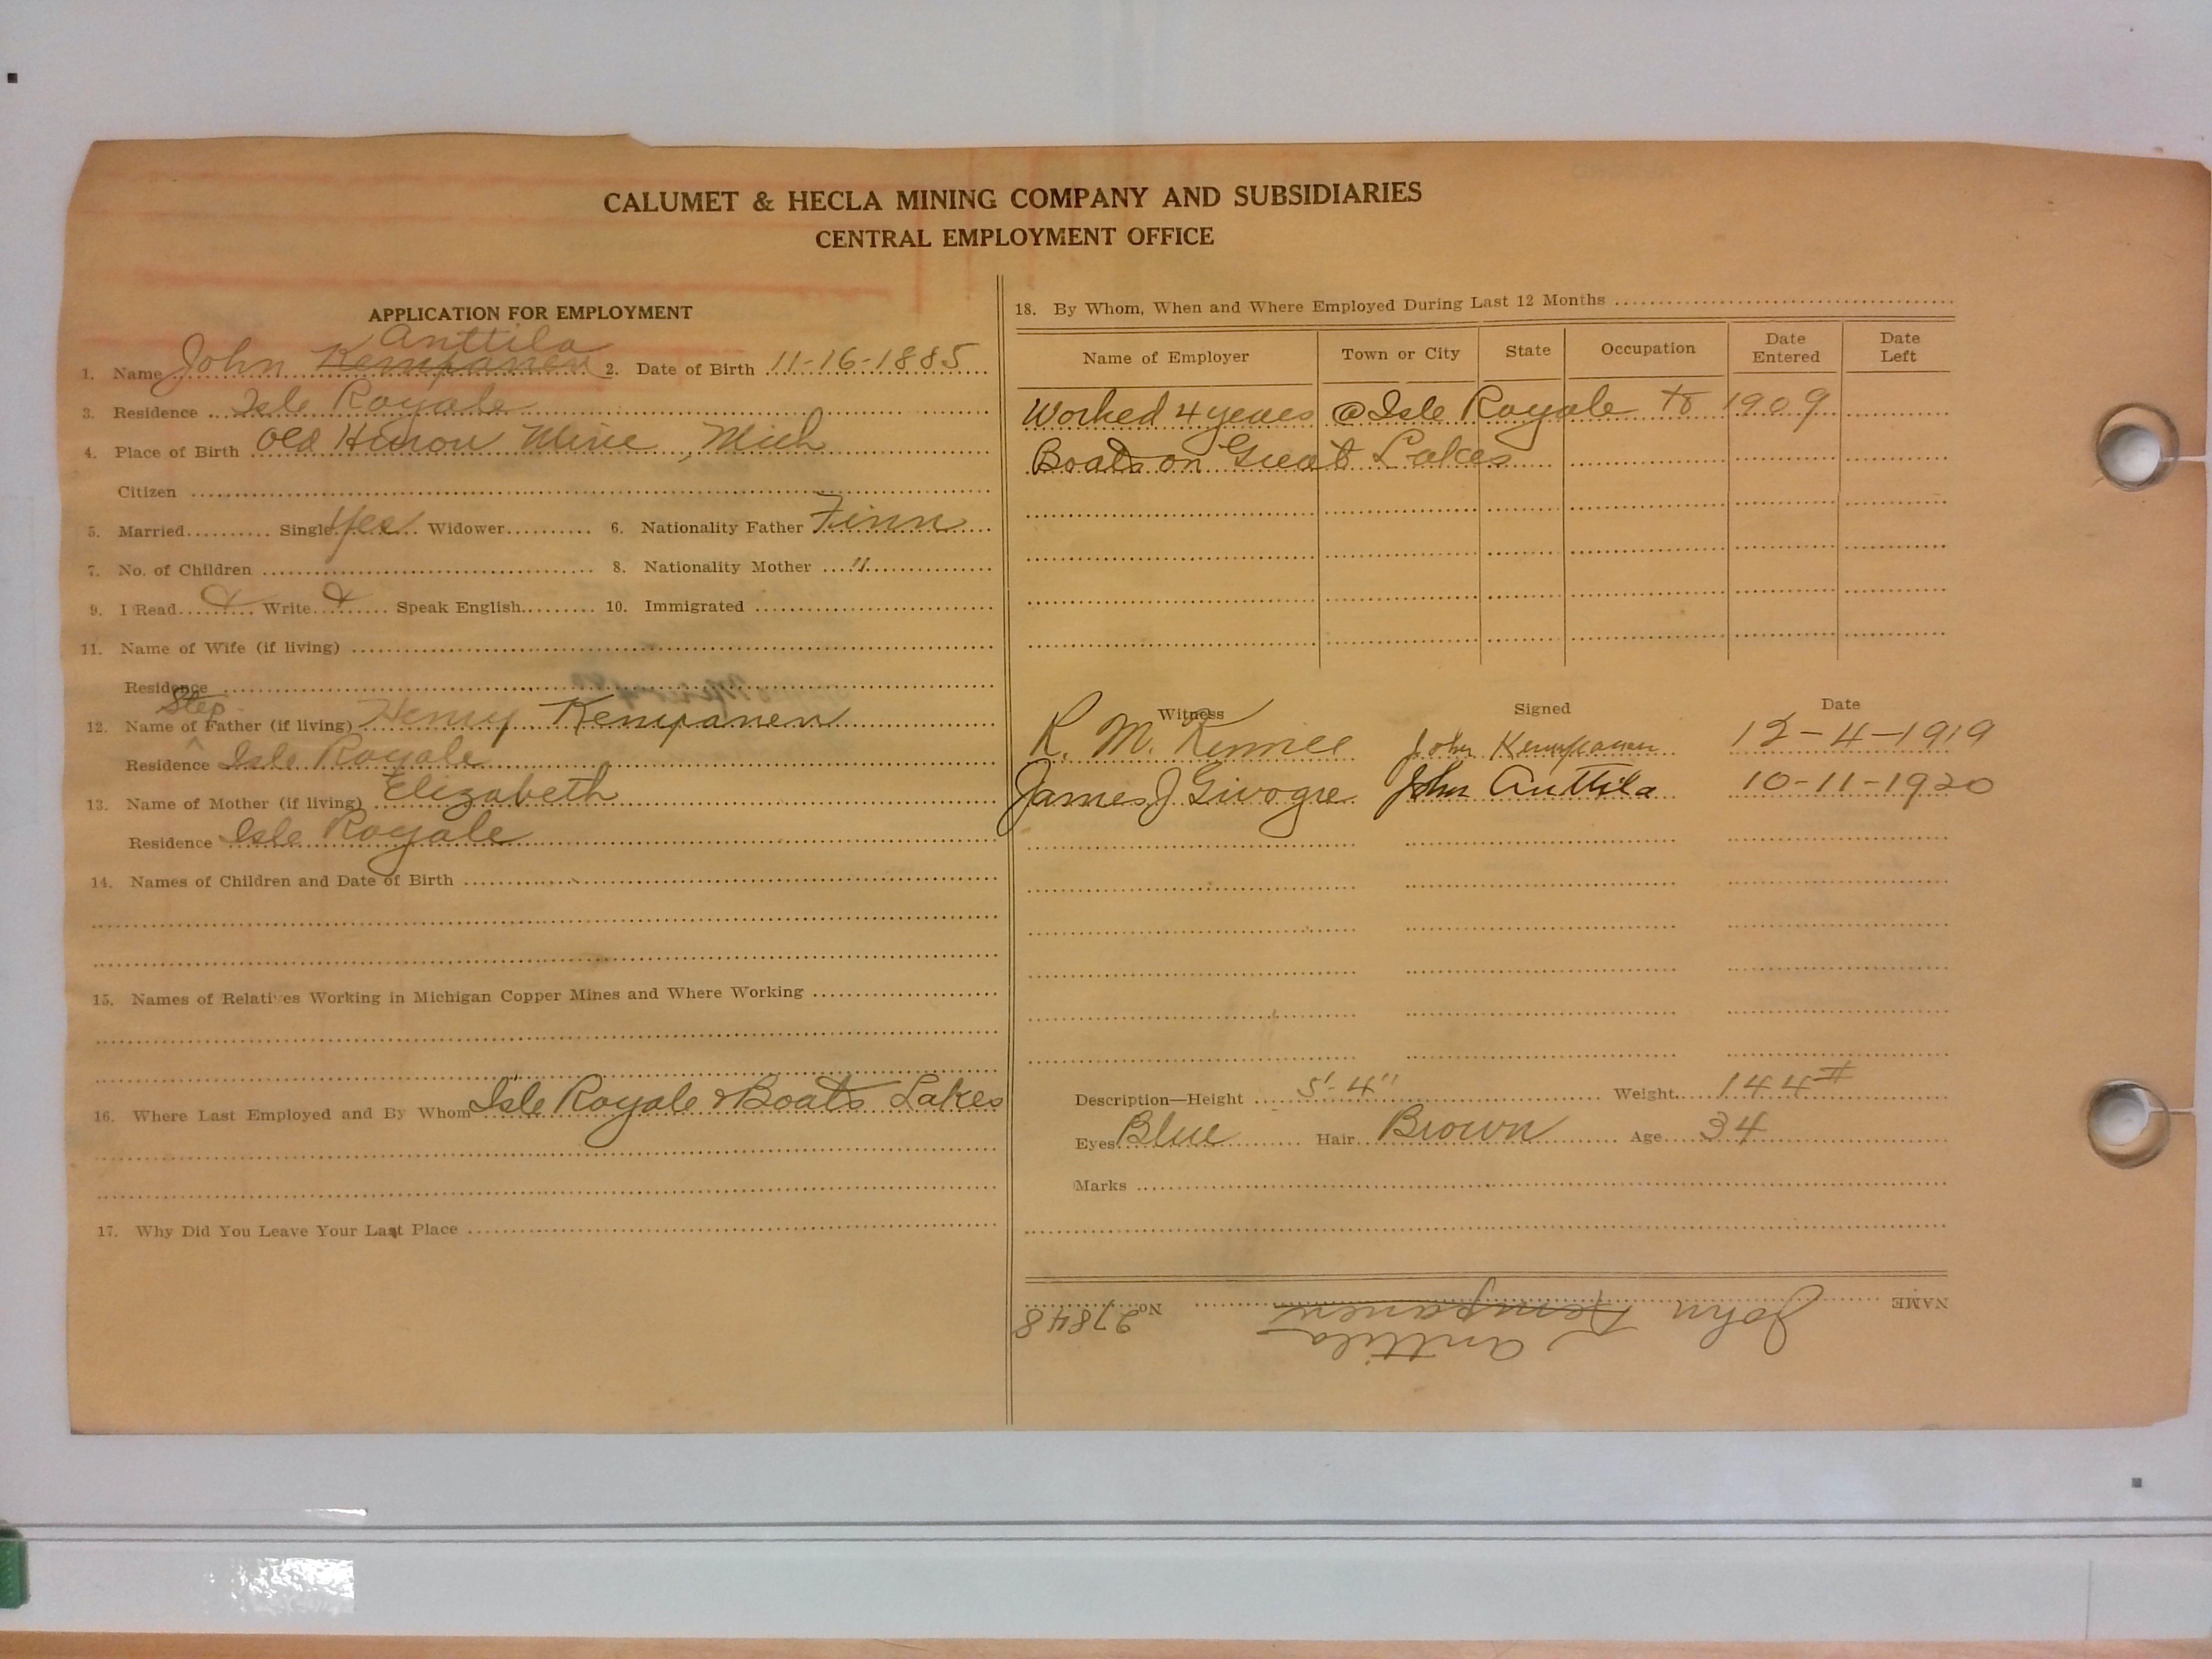 CALUMET & HECLA MINING COMPANY AND SUBSIDIARIES
CENTRAL EMPLOYMENT OFFICE
APPLICATION FOR EMPLOYMENT
Anttila
1. Name John Kempanen 2. Date of Birth 11-16-1885
3. Residence Isle Royale
4. Place of Birth Old Huron Mine, Mich
Citizen
5. Married Single Yes Widower 6. Nationality Father Finn
7. No. of Children 8. Nationality Mother "
9. I Read Write Speak English 10. Immigrated
11. Name of Wife (if living)
Residence
Step
12. Name of ^ Father (if living) Henry Kempanen
Residence Isle Royale
13. Name of Mother (if living) Elizabeth
Residence Isle Royale
14. Names of Children and Date of Birth
15. Names of Relatives Working in Michigan Copper Mines and Where Working
16. Where Last Employed and By Whom Isle Royale & Boats Lakes
17. Why Did You Leave Your Last Place
18. By Whom, When and Where Employed During Last 12 Months
Name of Employer Town or City State Occupation Date Entered Date Left
Worked 4 years @ Isle Royale to 1909
Boats on Great Lakes
Witness Signed Date
R. M. John Kempanen 12-4-1919
James J John Anttila 10-11-1920
Description—Height 5'-4" Weight 144#
Eyes Blue Hair Brown Age 34
Marks
NAME John Kempanen No. 27848
Anttila